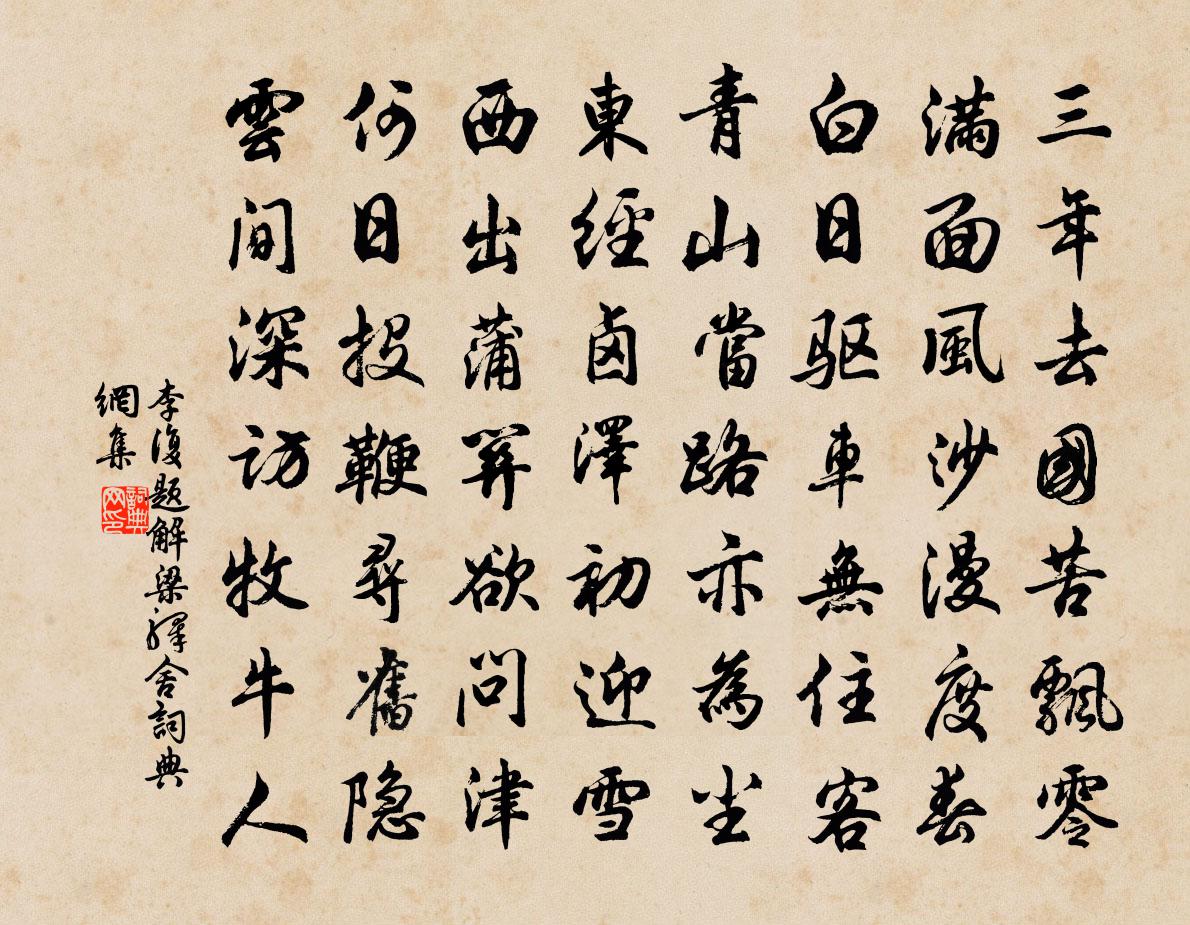 三年去國苦飄零
滿面風沙漫度春
白日驱車無住客
青山當路亦為尘
東經卤澤初迎雪
西出蒲关欲問津
何日投鞭尋舊隐
雲間深訪牧牛人
李復题解梁驛舍詞典
網集
詞典
网印